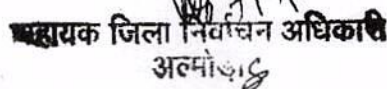 सहायक जिला निर्वाचन अधिकारी
अल्मोड़ा